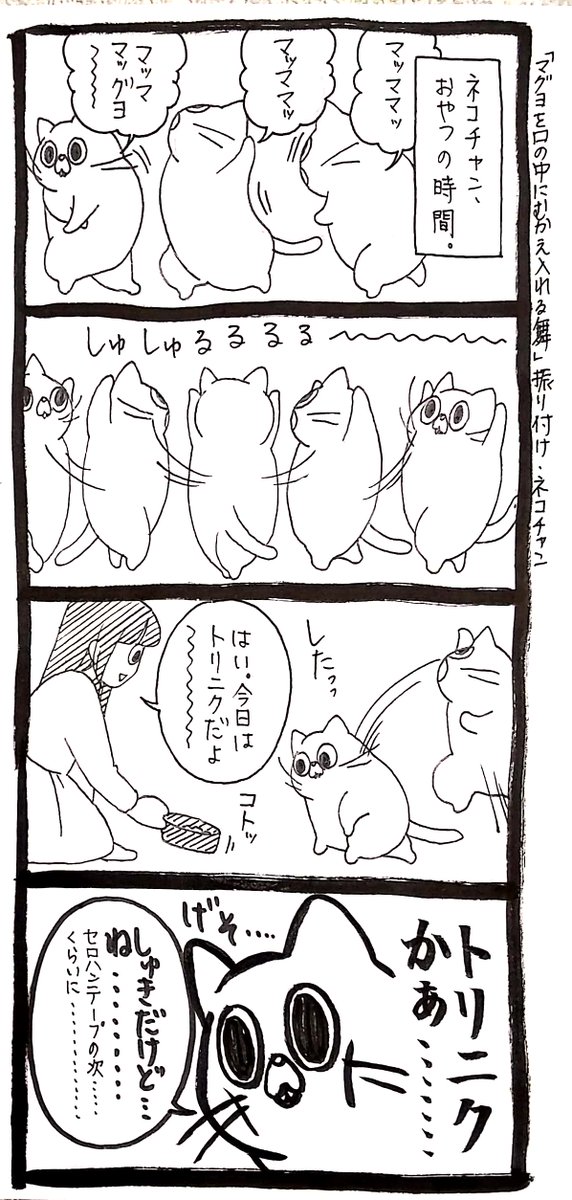 「マグヨを口の中にむかえ入れる舞」振り付け・ネコチャン
ネコチャン、
おやつの時間。
マッママッ
マッママッ
マッママ
マッグヨ
〜〜〜
しゅしゅるるるる〜〜〜〜
したっっ
はい。今日は
トリニクだよ
〜〜〜〜
コトッ
トリニク
かぁ…………
げそ….
しゅきだけど…
ね…………
セロハンテープの次……
くらいに……………